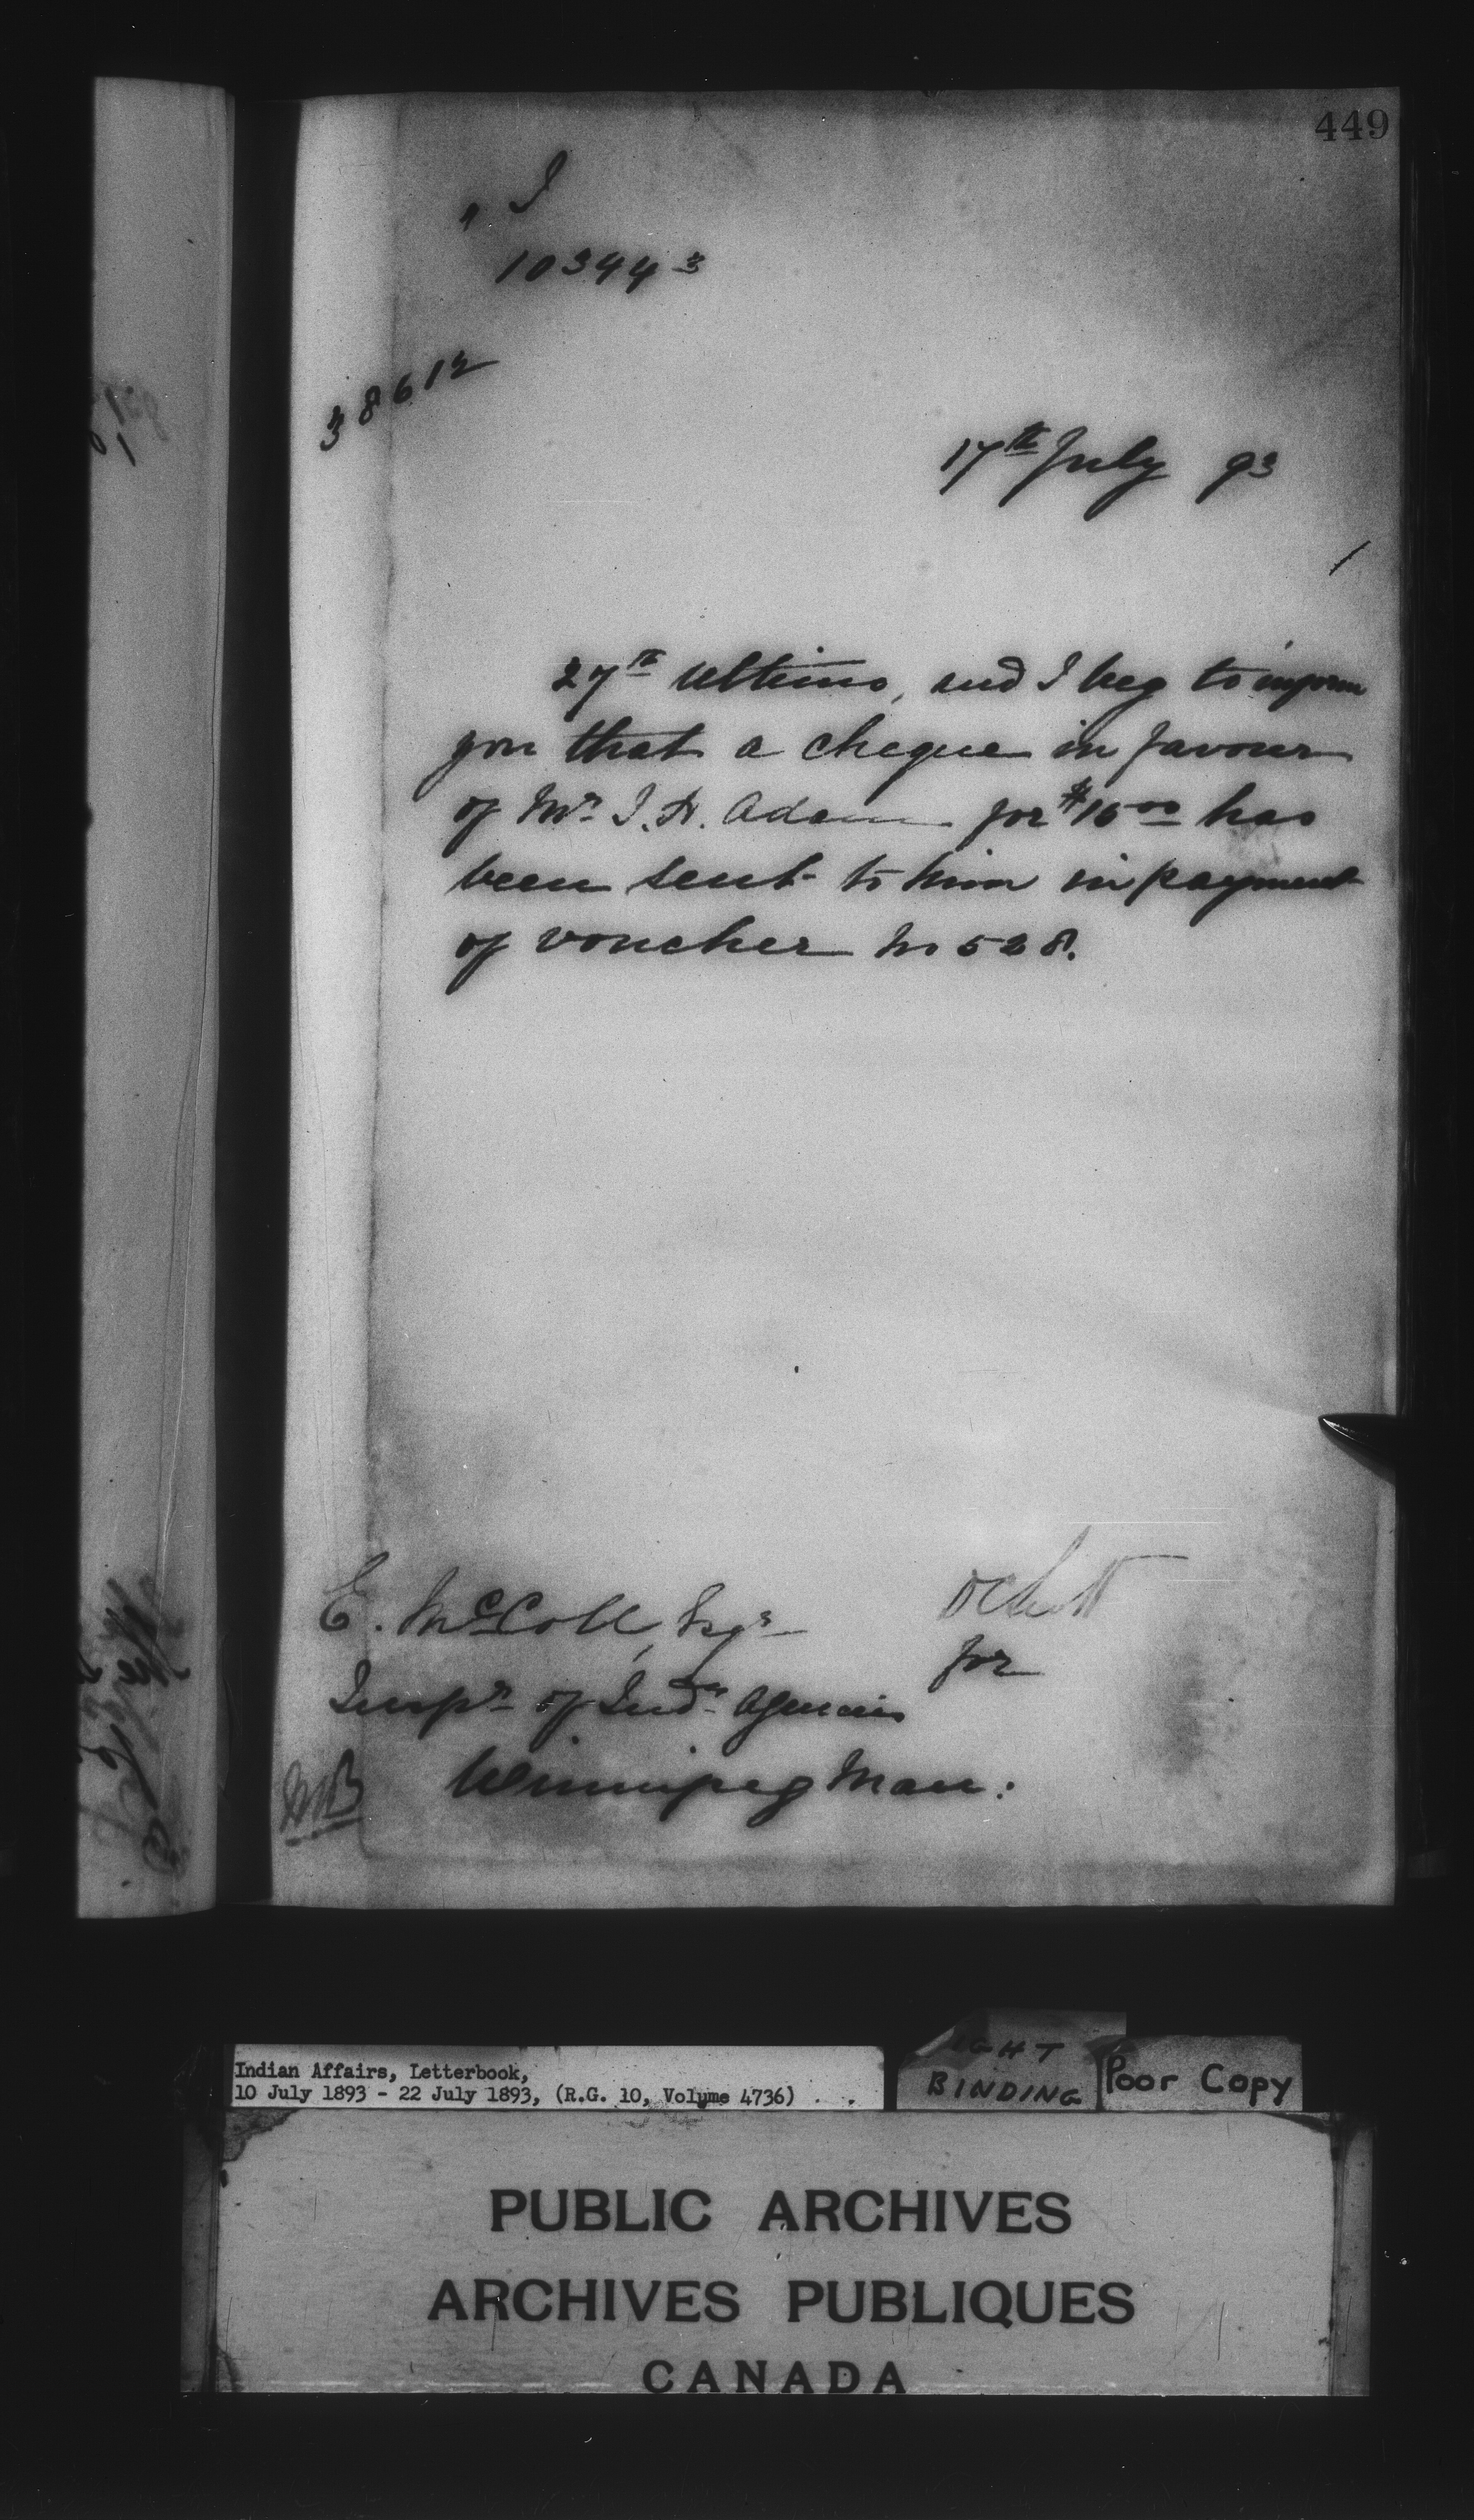 449
I
103443
38612
17th July 93
27th Ultimo, and I beg to inform
you that a cheque in favour
of Mr. J. H. Adam for $15 00 has
been sent to him in payment
of voucher No 528.
E. McColl, Esqr
for
Inspr of Indn Agencies
Winnipeg Man:
Indian Affairs, Letterbook,
10 July 1893 - 22 July 1893, (R.G. 10, Volume 4736)
BINDING
Poor Copy
PUBLIC ARCHIVES
ARCHIVES PUBLIQUES
CANADA